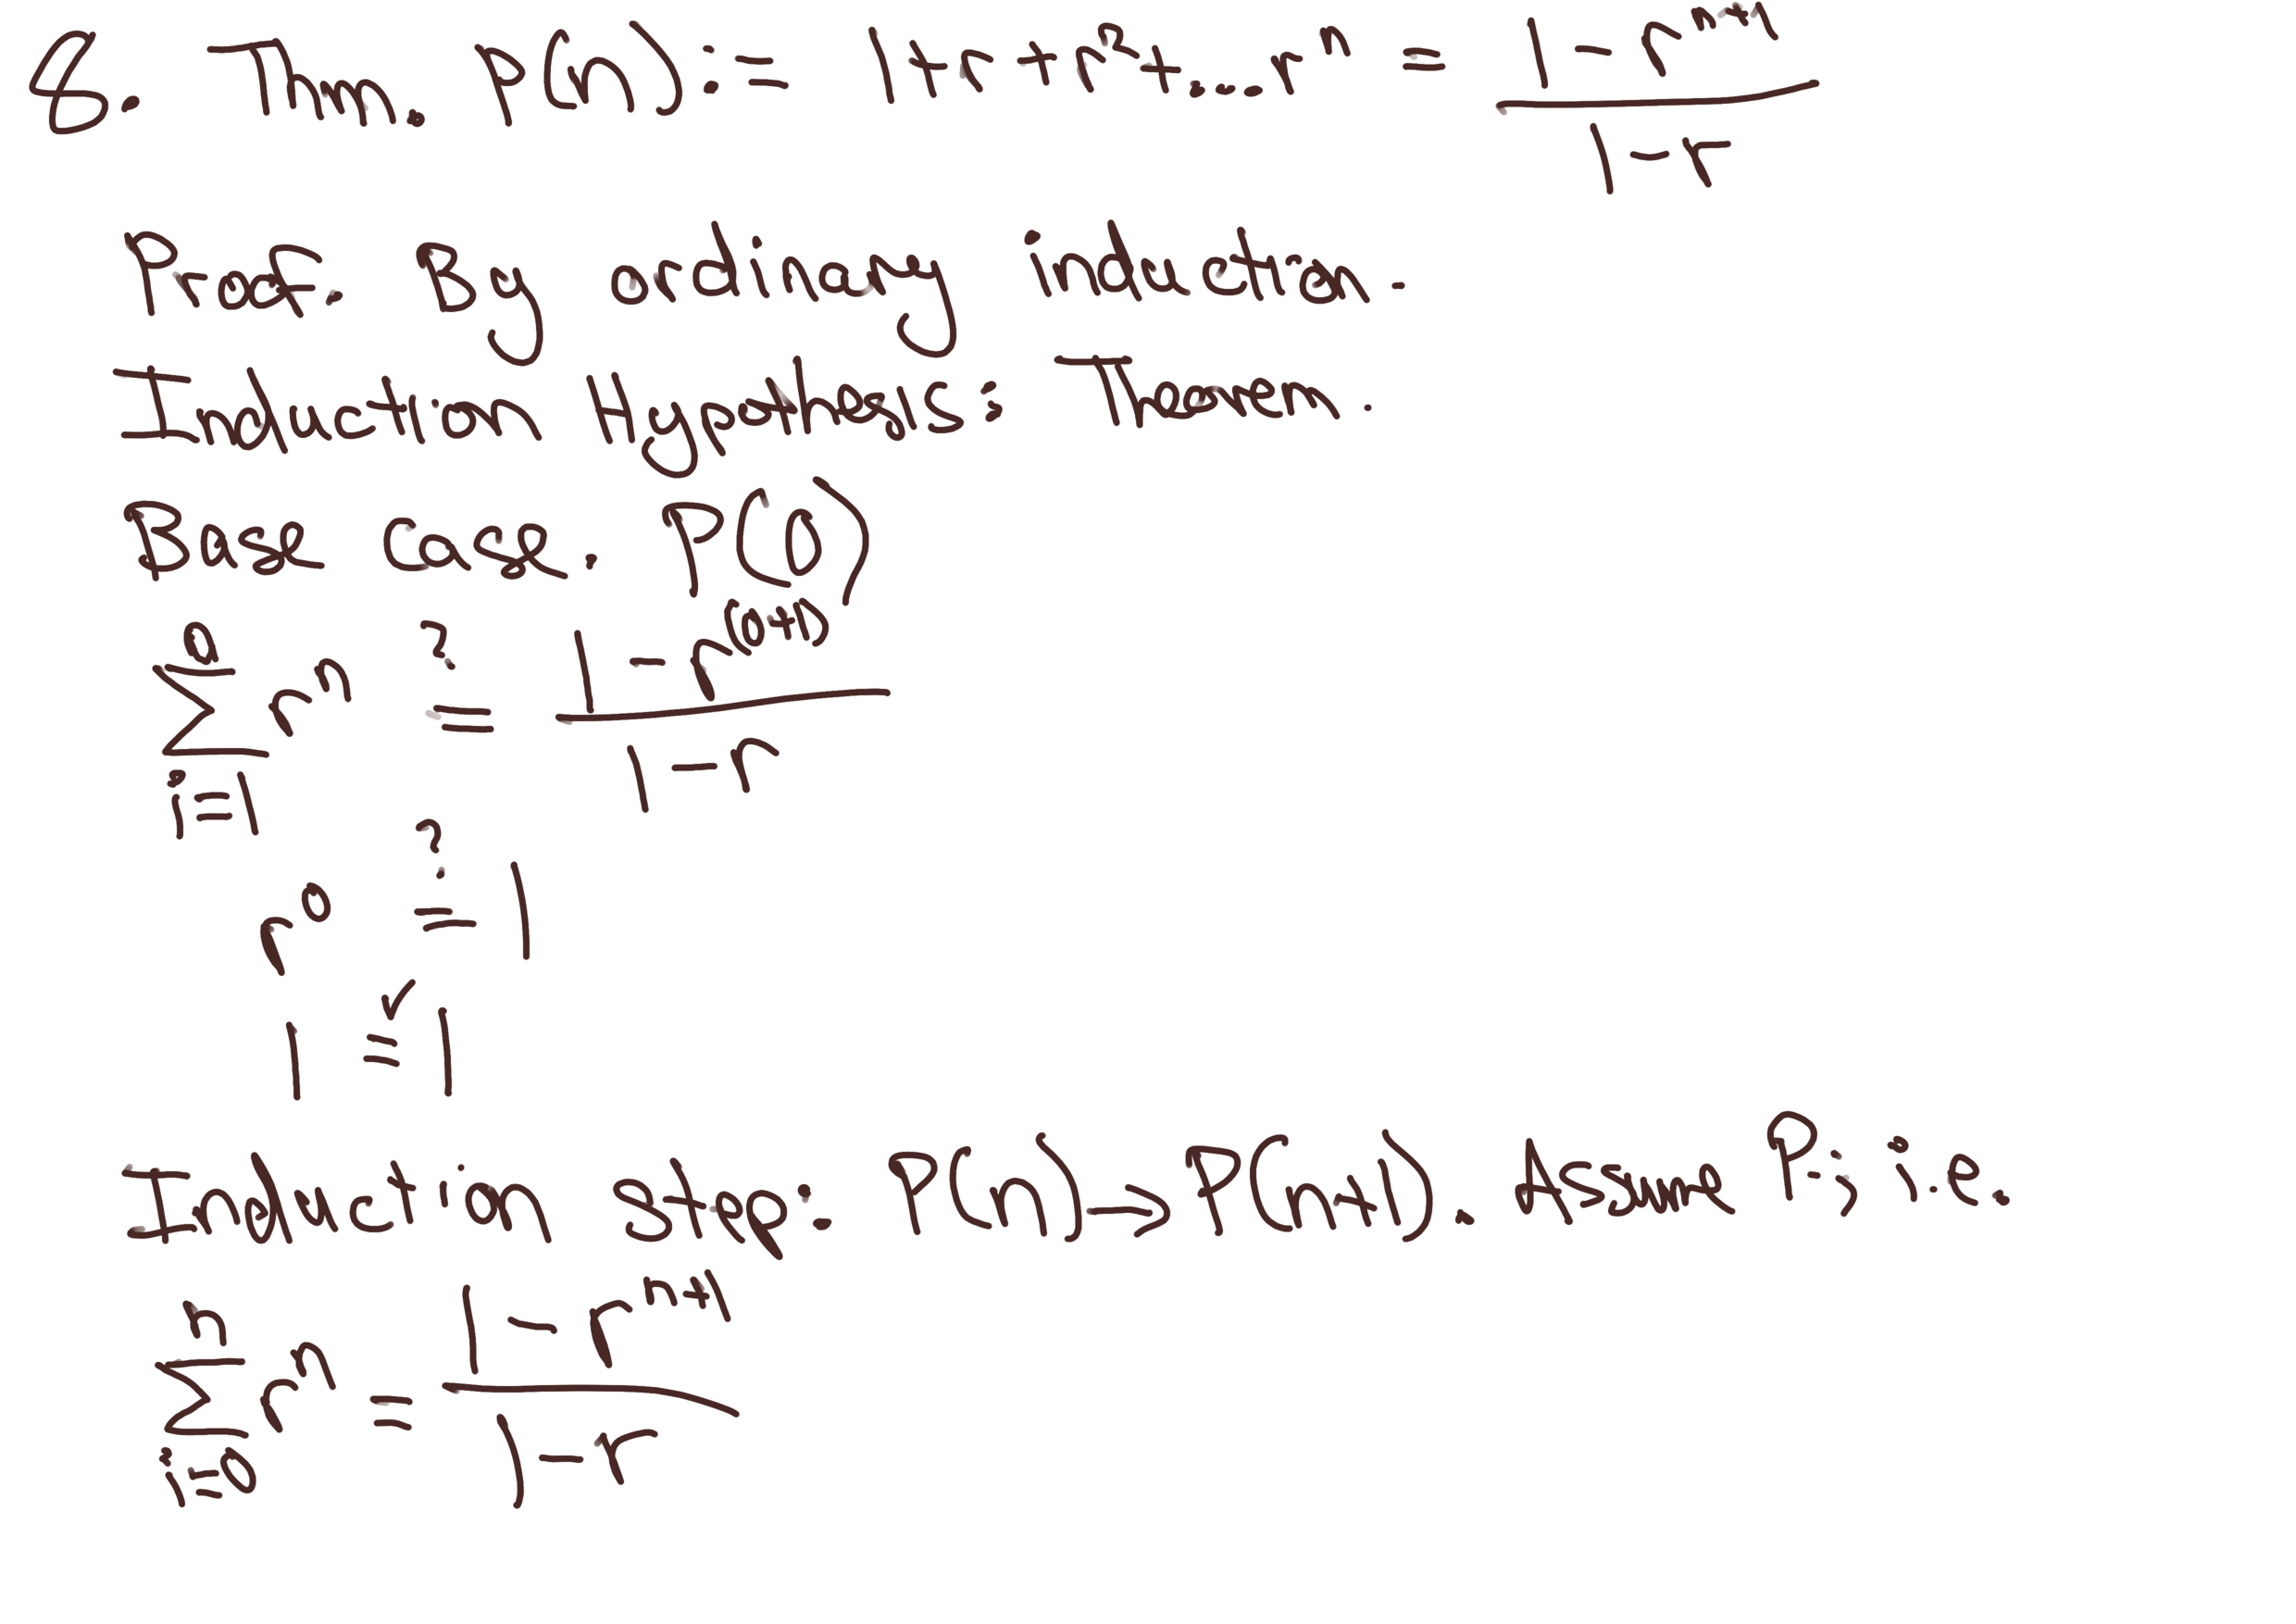 8. Thm. P(n) := 1 + r + r² + ... rⁿ = (1 - rⁿ⁺¹) / (1 - r)
Proof. By ordinary induction.
Induction Hypothesis: Theorem.
Base case. P(0)
∑_{i=1}^{0} rⁿ ≟ (1 - r⁽⁰⁺¹⁾) / (1 - r)
r⁰ ≟ 1
1 =✓ 1
Induction step: P(n) -> P(n+1). Assume P.; i.e.
∑_{i=0}^{n} rⁿ = (1 - rⁿ⁺¹) / (1 - r)